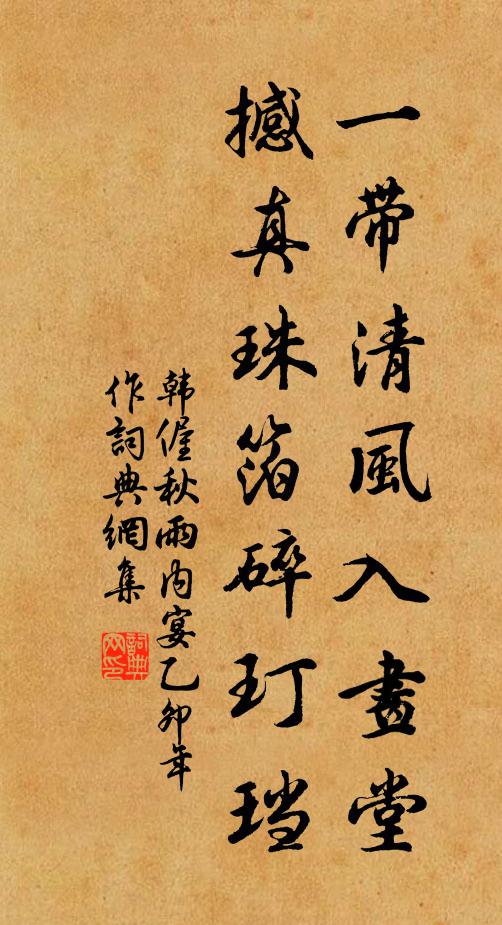 一帶清風入畫堂
撼真珠箔碎玎璫
韓偓秋雨內宴乙卯年
作詞典網集
詞典
网印